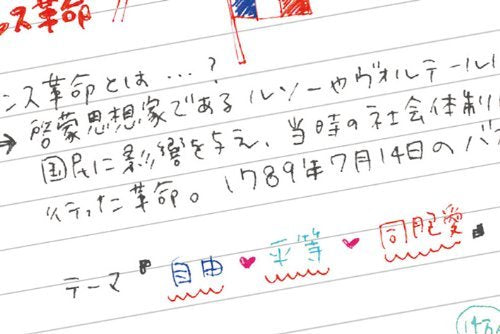 ス革命
ンス革命とは…?
→啓蒙思想家であるルソーやヴォルテール
国民に影響を与え、当時の社会体制
行った革命。1789年7月14日のバ
テーマ 自由♥平等♥同胞愛